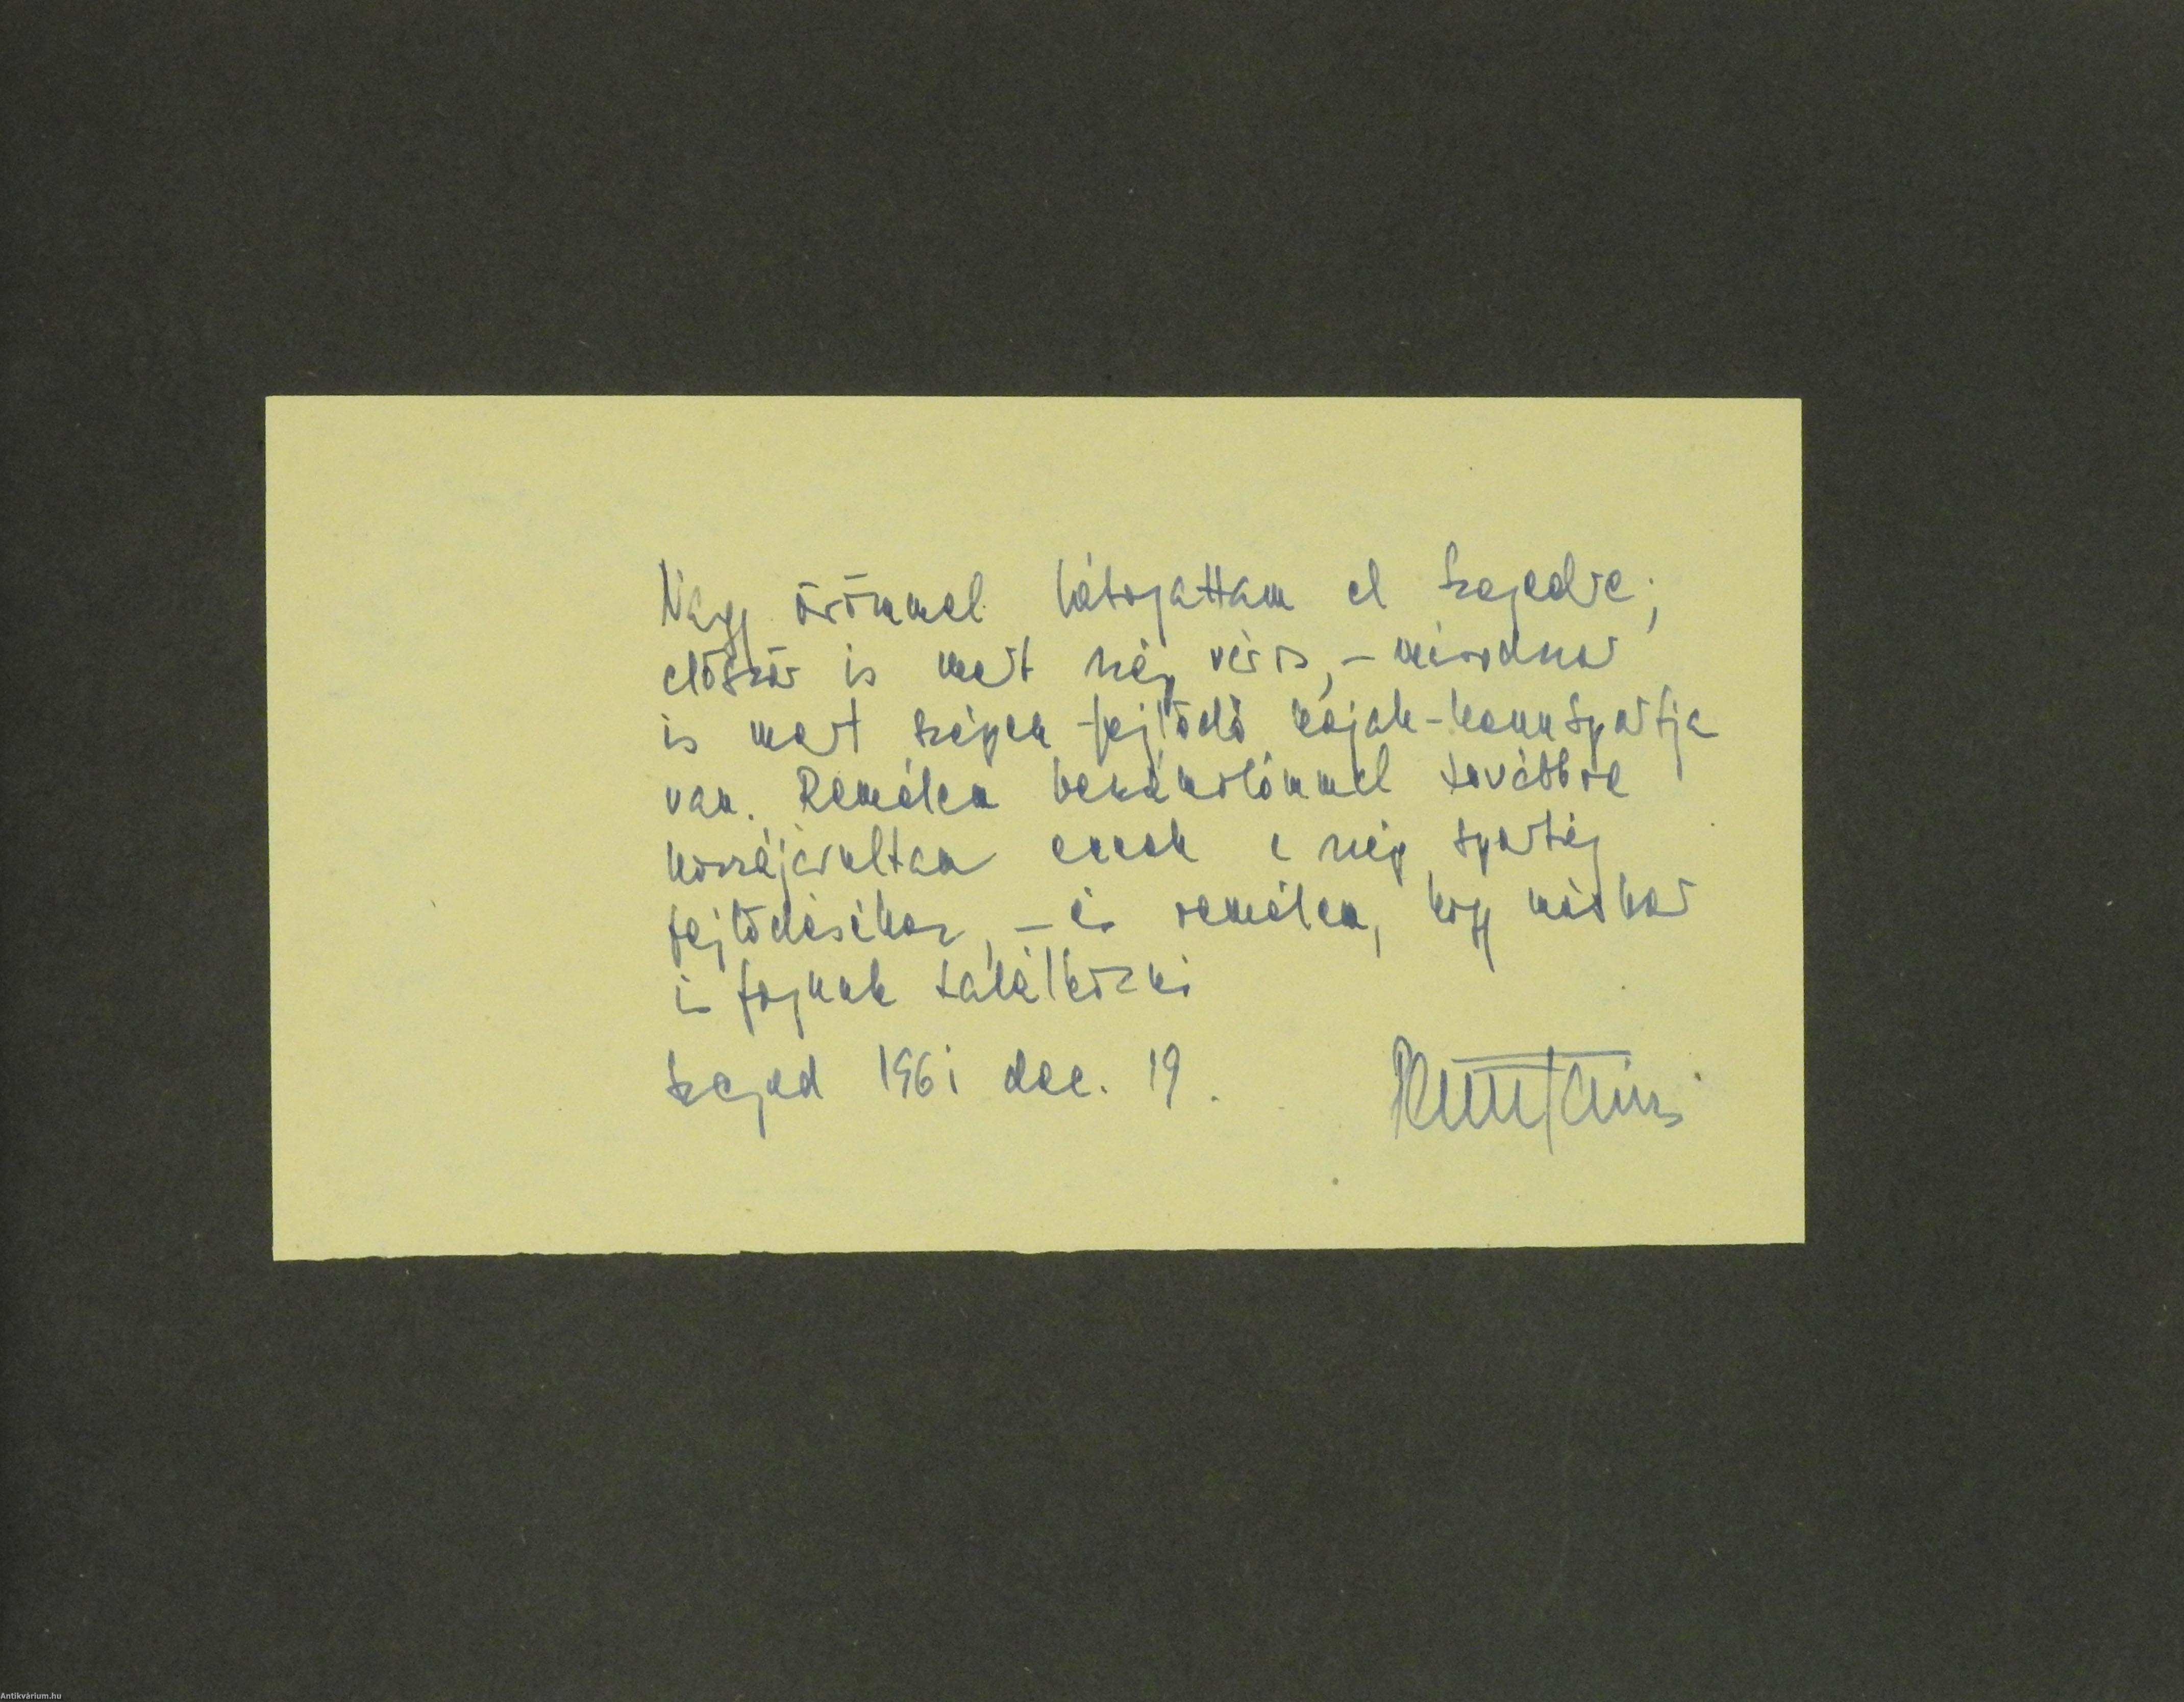 Nagy örömmel látogattam el Szegedre;
először is mert szép város, – másodszor
is mert szépen fejlődő kajak-kenu sportja
van. Remélem beszámolómmal továbbra
hozzájárultam ennek a szép sportág
fejlődéséhez, – és remélem, hogy máskor
is fogunk találkozni
Szeged 1961 dec. 19.
Antikvárium.hu